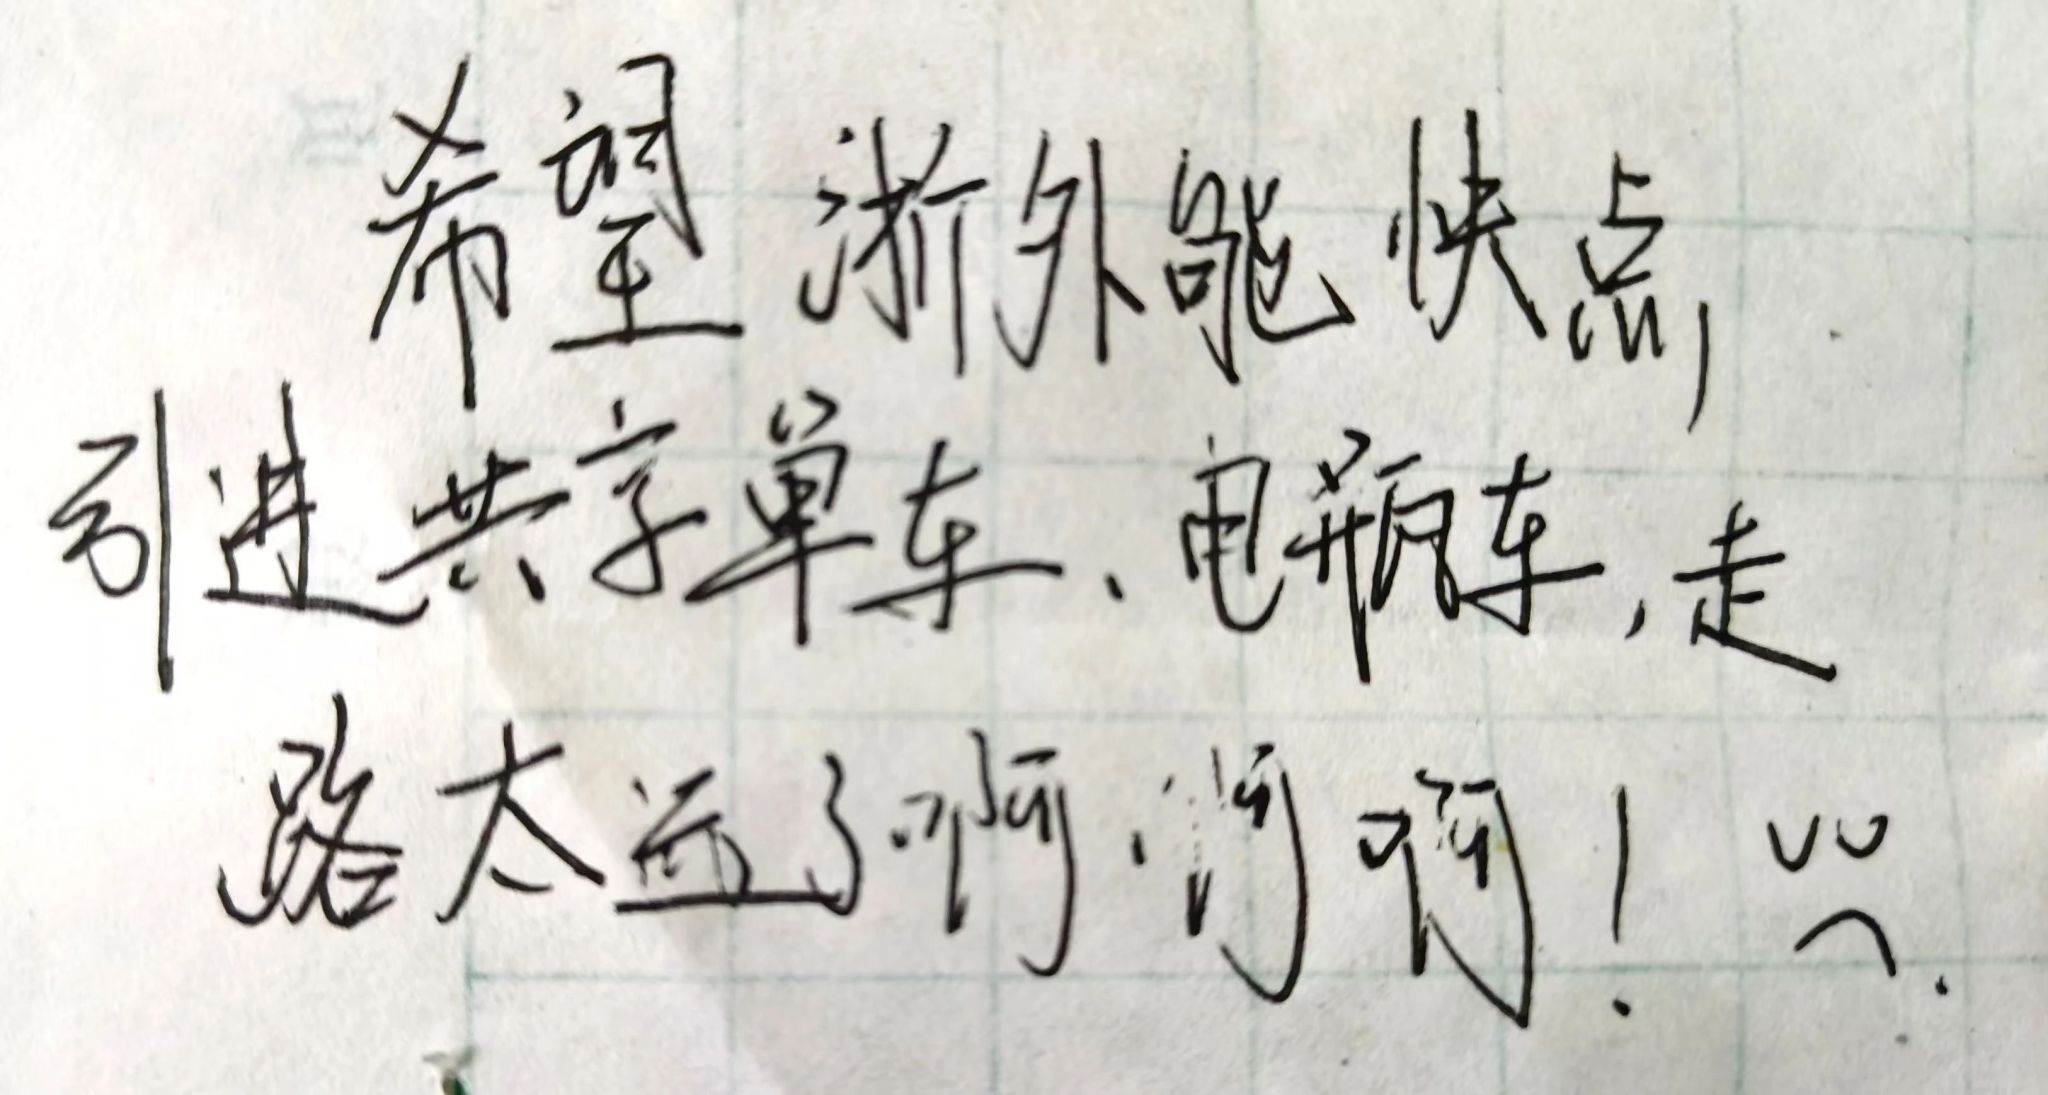 希望浙外能快点,
引进共享单车、电瓶车,走
路太远了啊啊啊!